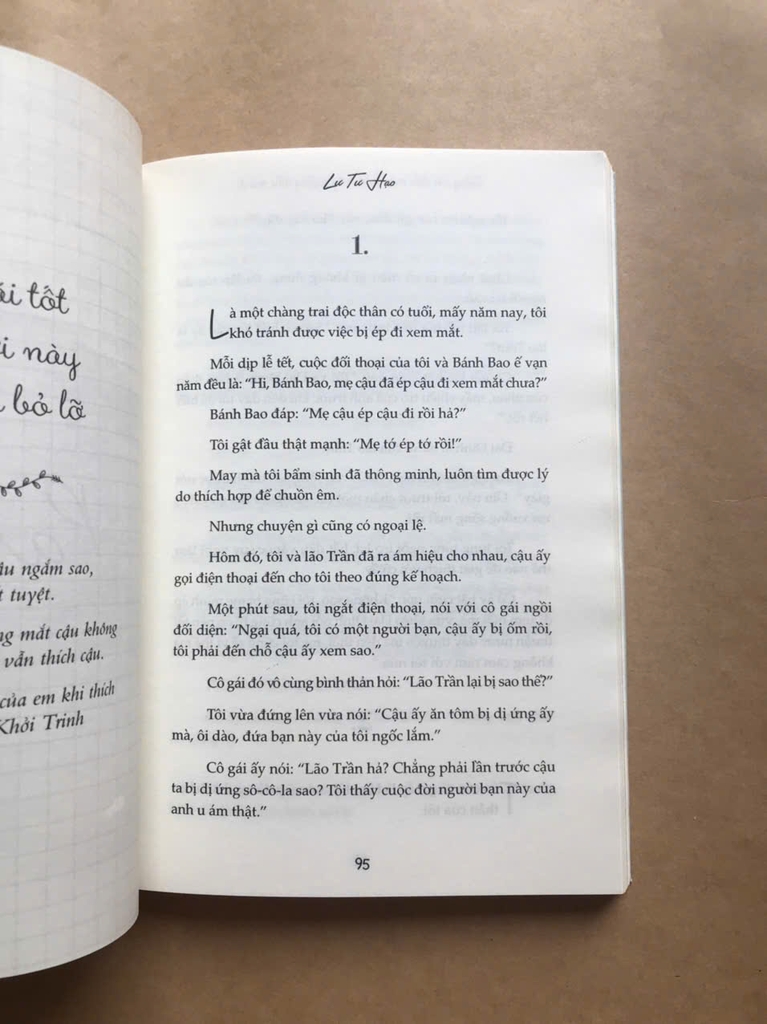 tốt
này
bỏ lỡ
ngắm sao,
tuyệt.
mắt cậu không
vẫn thích cậu.
của em khi thích
Khởi Trinh
Lư Tư Hạo
1.
Là một chàng trai độc thân có tuổi, mấy năm nay, tôi
khó tránh được việc bị ép đi xem mắt.
Mỗi dịp lễ tết, cuộc đối thoại của tôi và Bánh Bao ế vạn
năm đều là: “Hi, Bánh Bao, mẹ cậu đã ép cậu đi xem mắt chưa?”
Bánh Bao đáp: “Mẹ cậu ép cậu đi rồi hả?”
Tôi gật đầu thật mạnh: “Mẹ tớ ép tớ rồi!”
May mà tôi bẩm sinh đã thông minh, luôn tìm được lý
do thích hợp để chuồn êm.
Nhưng chuyện gì cũng có ngoại lệ.
Hôm đó, tôi và lão Trần đã ra ám hiệu cho nhau, cậu ấy
gọi điện thoại đến cho tôi theo đúng kế hoạch.
Một phút sau, tôi ngắt điện thoại, nói với cô gái ngồi
đối diện: “Ngại quá, tôi có một người bạn, cậu ấy bị ốm rồi,
tôi phải đến chỗ cậu ấy xem sao.”
Cô gái đó vô cùng bình thản hỏi: “Lão Trần lại bị sao thế?”
Tôi vừa đứng lên vừa nói: “Cậu ấy ăn tôm bị dị ứng ấy
mà, ôi dào, đứa bạn này của tôi ngốc lắm.”
Cô gái ấy nói: “Lão Trần hả? Chẳng phải lần trước cậu
ta bị dị ứng sô-cô-la sao? Tôi thấy cuộc đời người bạn này của
anh u ám thật.”
95